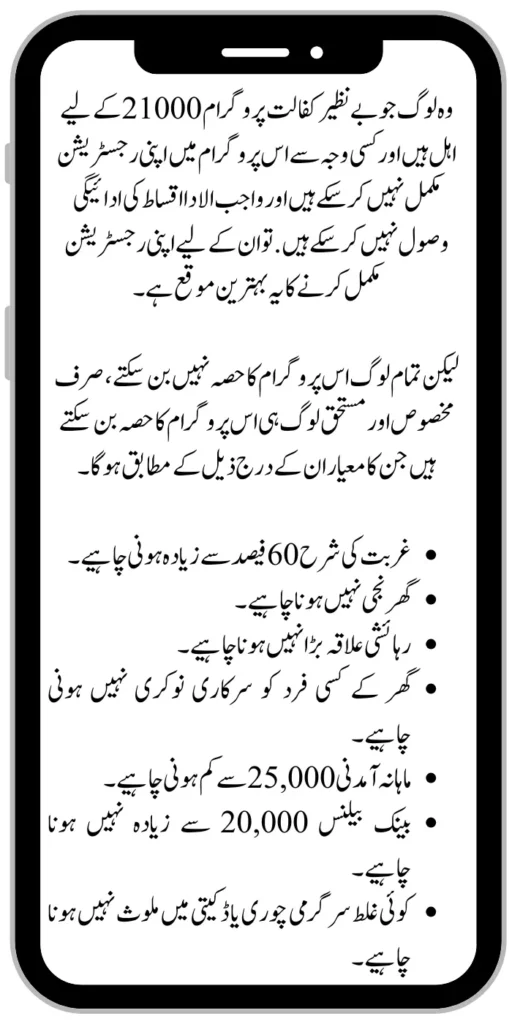 وہ لوگ جو بے نظیر کفالت پروگرام 21000 کے لیے
اہل ہیں اور کسی وجہ سے اس پروگرام میں اپنی رجسٹریشن
مکمل نہیں کر سکے ہیں اور واجب الادا اقساط کی ادائیگی
وصول نہیں کر سکے ہیں. تو ان کے لیے اپنی رجسٹریشن
مکمل کرنے کا یہ بہترین موقع ہے۔
لیکن تمام لوگ اس پروگرام کا حصہ نہیں بن سکتے، صرف
مخصوص اور مستحق لوگ ہی اس پروگرام کا حصہ بن سکتے
ہیں جن کا معیار ان کے درج ذیل کے مطابق ہو گا۔
• غربت کی شرح 60 فیصد سے زیادہ ہونی چاہیے۔
• گھر نجی نہیں ہونا چاہیے۔
• رہائشی علاقہ بڑا نہیں ہونا چاہیے۔
• گھر کے کسی فرد کو سرکاری نوکری نہیں ہونی
چاہیے۔
• ماہانہ آمدنی 25,000 سے کم ہونی چاہیے۔
• بینک بیلنس 20,000 سے زیادہ نہیں ہونا
چاہیے۔
• کوئی غلط سرگرمی چوری یا ڈکیتی میں ملوث نہیں ہونا
چاہیے۔